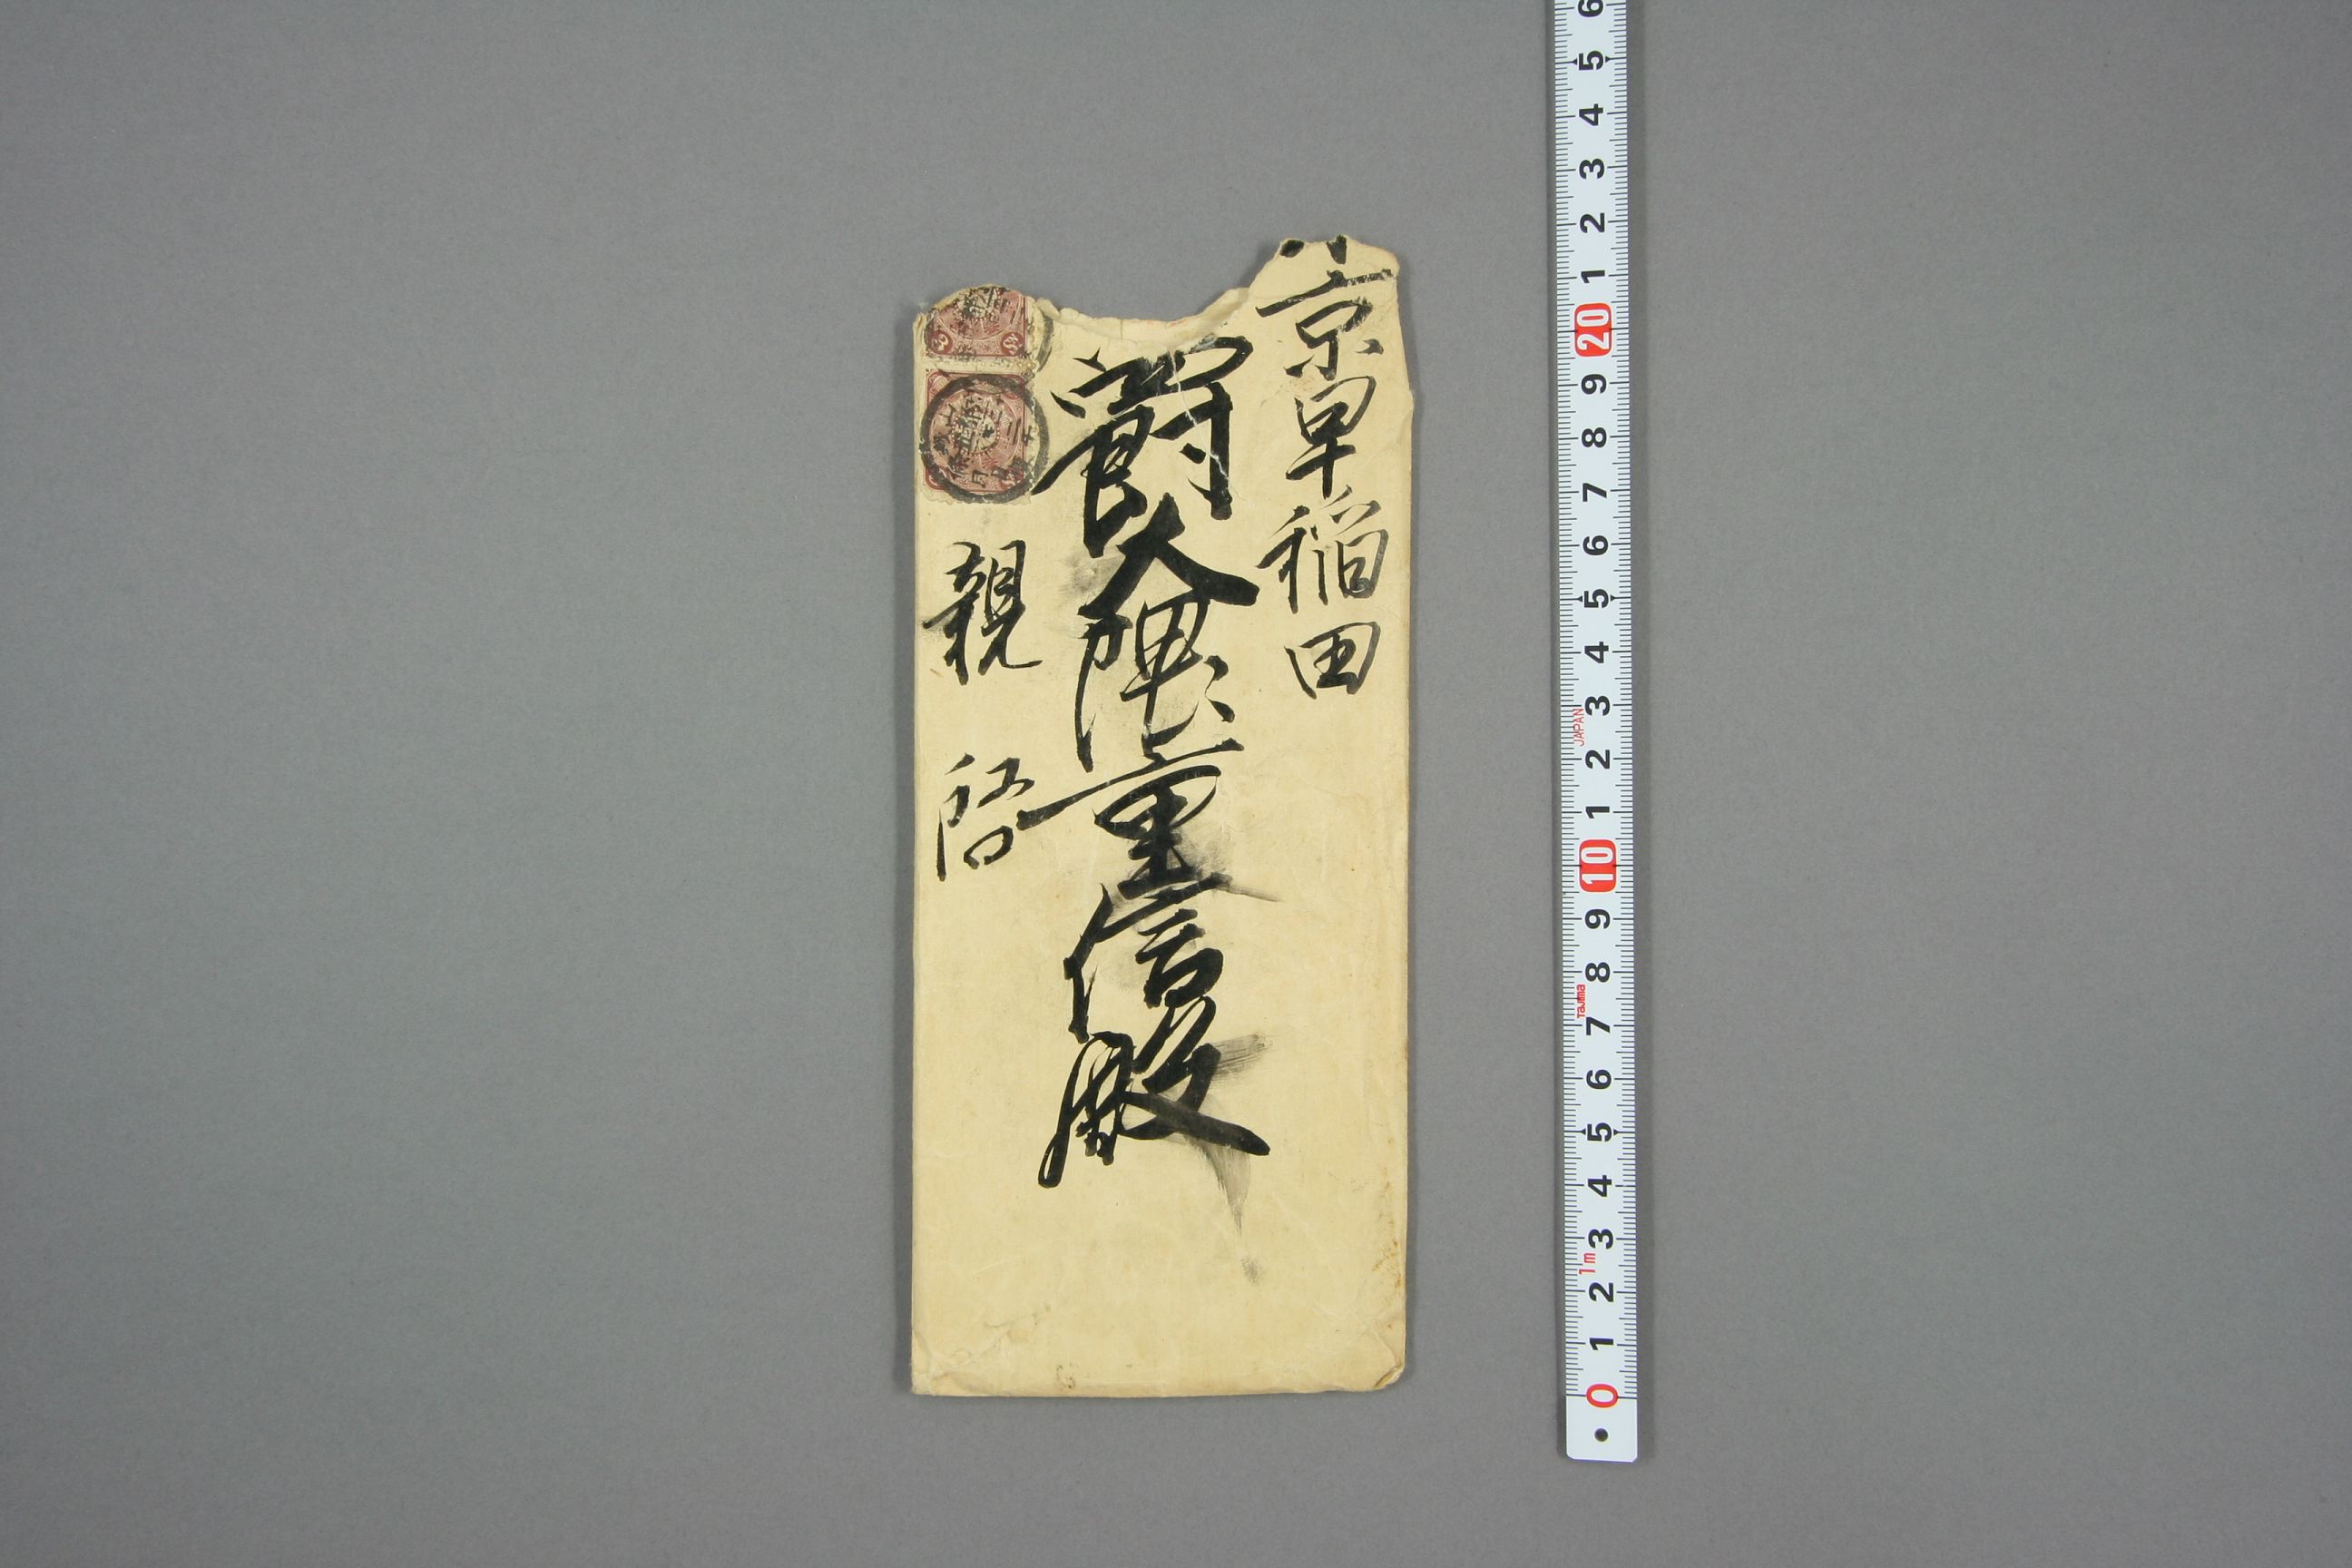 京早稲田
爵大隈重信殿
親啓
6
5
4
3
2
1
20
9
8
7
6
5
4
3
JAPAN
2
1
10
9
8
Tajima
7
6
5
4
3
1m
2
1
0